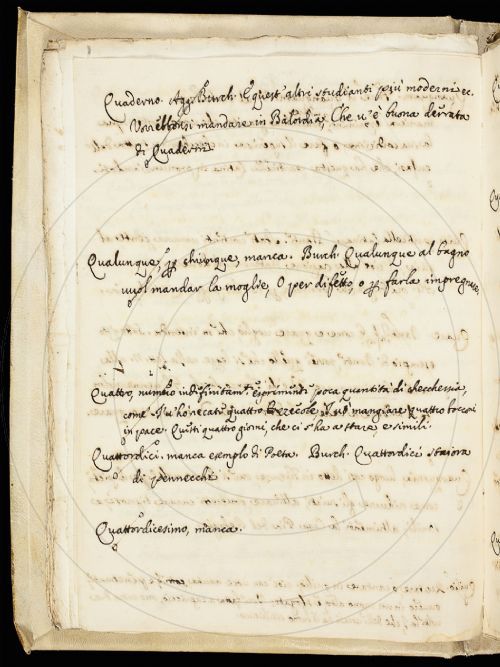 Quaderno. Agg. Burch. E quest' altri studianti più moderni ec.
Vorrebbonsi mandare in Balordia, Che v'è buona derrata
di Quaderni
Qualunque, chiunque, manca. Burch. Qualunque al bagno
vuol mandar la moglie, O per difetto, o farla impregnare,
Quattro, numero indefinitam. esprimente poca quantità di checchessia,
come I' v' ho recato quattro mangiare quattro bocconi
in pace. Questi quattro giorni, che ci s'ha a stare, e simili.
Quattordici. manca esemplo di Poeta. Burch. Quattordici staiora
di pennecchi
Quattordicesimo, manca.